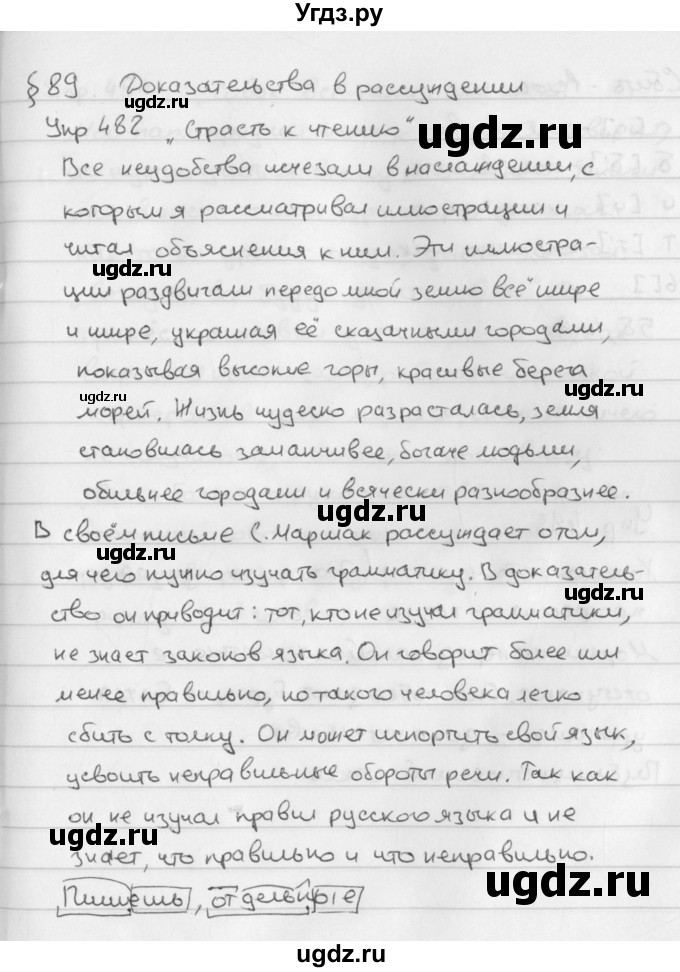 Угдз.ру
§ 89 Доказательства в рассуждении
ugdz.ru
Упр 482 „Страсть к чтению"
ugdz.ru
Все неудобства исчезали в наслаждении, с
которым я рассматривал иллюстрации и
читал объяснения к ним. Эти иллюстра-
ugdz.ru
ции раздвигали передо мной землю всё шире
и шире, украшая её сказачными городами,
ugdz.ru
показывая высокие горы, красивые берега
ugdz.ru
ugdz.ru
морей. Жизнь чудеско разрасталась, земля
становилась заманчивее, богаче людьми,
обильнее городами и всячески разнообразнее.
ugdz.ru
В своём письме С. Маршак рассуждает о том,
ugdz.ru
для чего нужно изучать грамматику. В доказатель-
ugdz.ru
ство он приводит: тот, кто не изучал грамматики,
не знает законов языка. Он говорит более или
ugdz.ru
менее правильно, но такого человека легко
сбить с толку. Он может испортить свой язык,
ugdz.ru
усвоить неправильные обороты речи. Так как
он не изучал правил русского языка и не
ugdz.ru
знает, что правильно и что неправильно.
ugdz.ru
Пишешь, отдельные
ugdz.ru
ugdz.ru